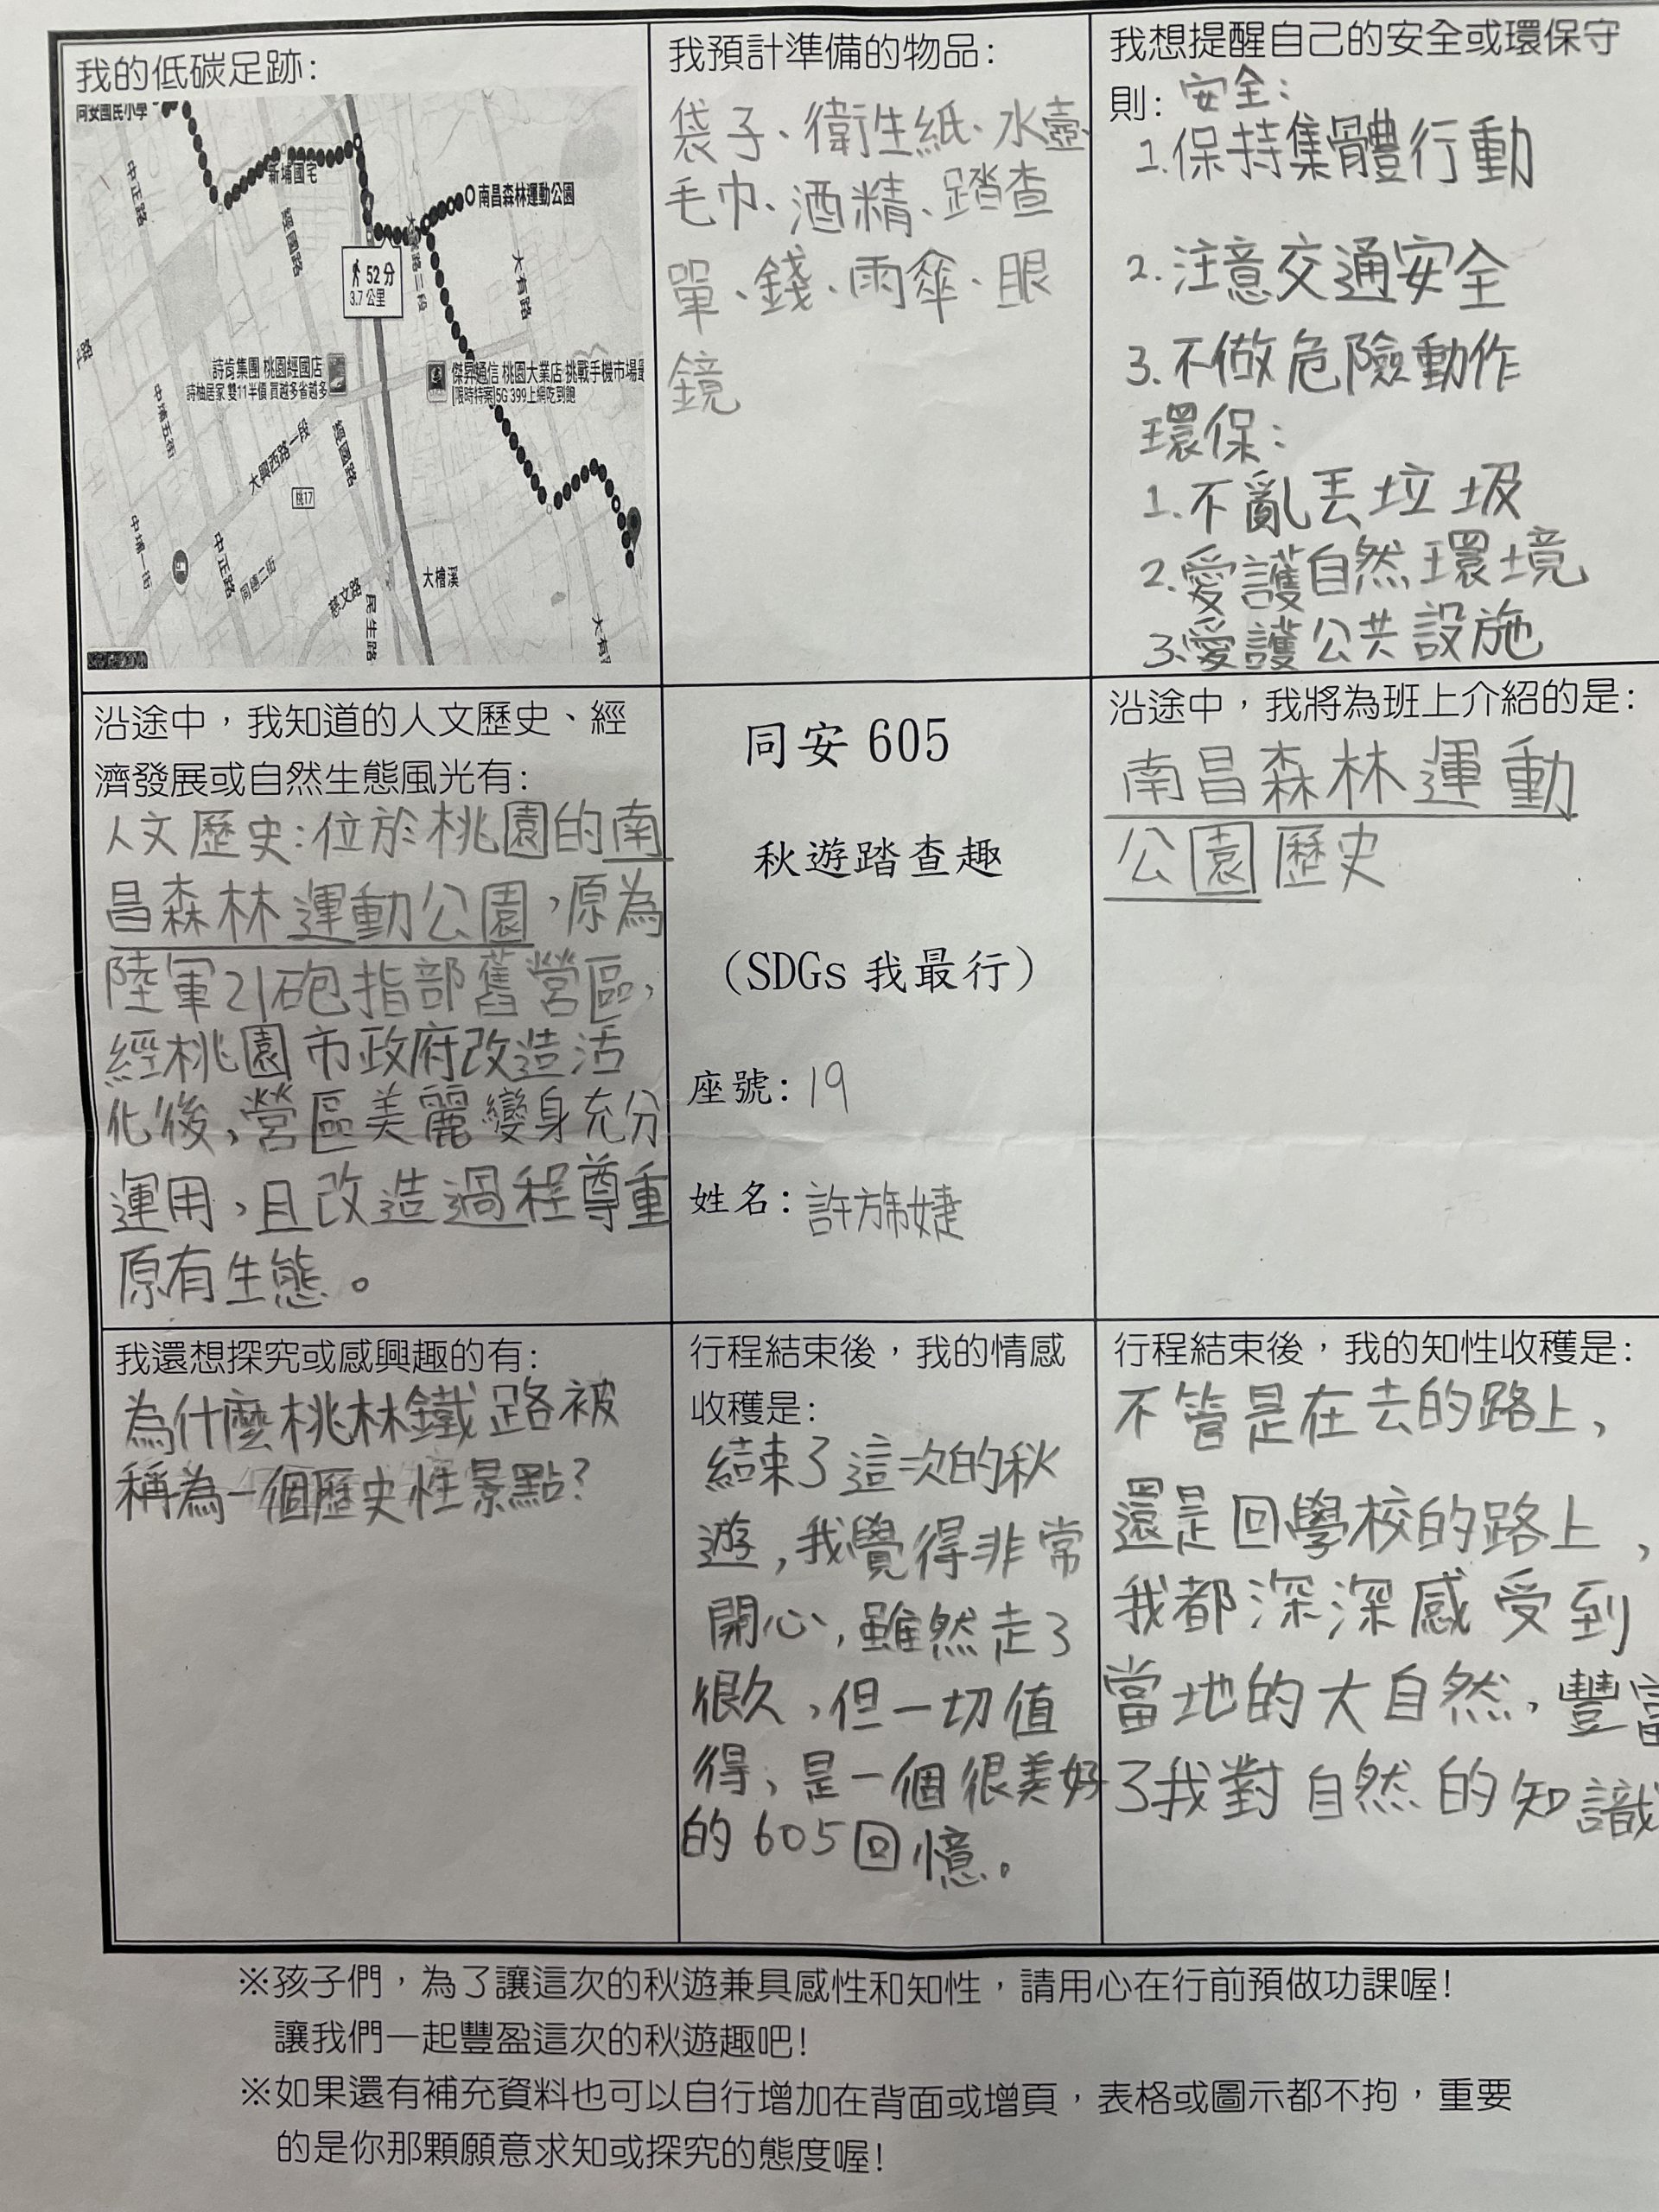 我的低碳足跡:
同安國民小學
新埔國宅
南昌森林運動公園
中正路
經國路
大有路
52 分
3.7 公里
詩肯集團 桃園經國店
詩柚居家 雙11半價 買越多省越多
傑昇通信 桃園大業店 挑戰手機市場最
[限時特案]5G 399上網吃到飽
中埔五街
經國路
大興西路一段
桃17
中埔一街
中正路
同德二街
慈文路
民生路
大檜溪
大有
我預計準備的物品:
袋子、衛生紙、水壺
毛巾、酒精、踏查
單、錢、雨傘、眼
鏡
我想提醒自己的安全或環保守
則: 安全:
1.保持集體行動
2.注意交通安全
3.不做危險動作
環保:
1.不亂丟垃圾
2.愛護自然環境
3.愛護公共設施
沿途中，我知道的人文歷史、經
濟發展或自然生態風光有:
人文歷史:位於桃園的南
昌森林運動公園，原為
陸軍21砲指部舊營區，
經桃園市政府改造活
化後，營區美麗變身充分
運用，且改造過程尊重
原有生態。
同安 605
秋遊踏查趣
(SDGs 我最行)
座號: 19
姓名: 許旆婕
沿途中，我將為班上介紹的是:
南昌森林運動
公園歷史
我還想探究或感興趣的有:
為什麼桃林鐵路被
稱為一個歷史性景點?
行程結束後，我的情感
收穫是:
結束了這次的秋
遊，我覺得非常
開心，雖然走了
很久，但一切值
得，是一個很美好
的605回憶。
行程結束後，我的知性收穫是:
不管是在去的路上，
還是回學校的路上，
我都深深感受到
當地的大自然，豐富
了我對自然的知識
※孩子們，為了讓這次的秋遊兼具感性和知性，請用心在行前預做功課喔!
讓我們一起豐盈這次的秋遊趣吧!
※如果還有補充資料也可以自行增加在背面或增頁，表格或圖示都不拘，重要
的是你那顆願意求知或探究的態度喔!